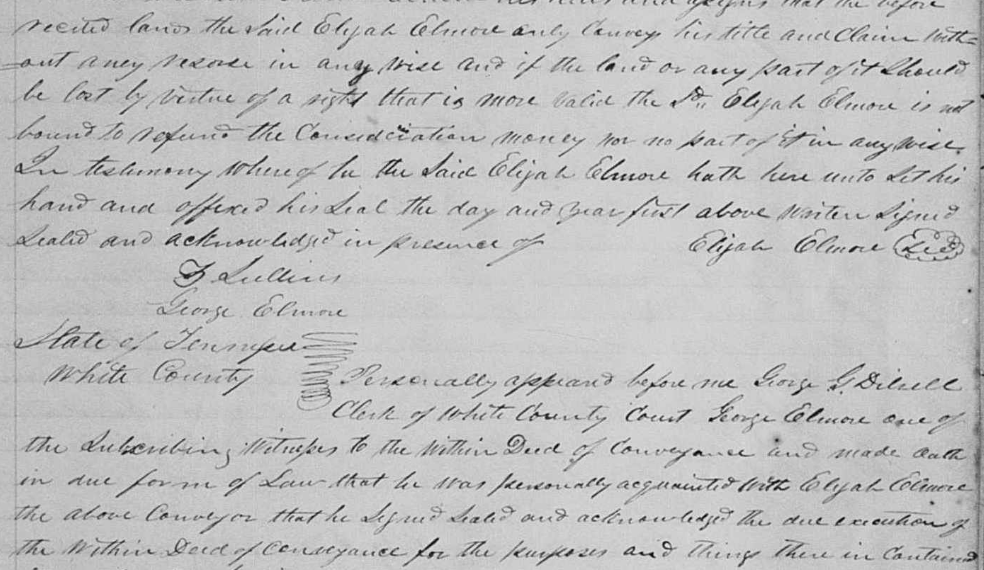 his heirs and assigns that the before
recited lands the Said Elijah Elmore only Conveys his title and Claim With=
out aney resose in any wise and if the land or any part of it Should
be lost by virtue of a right that is more Valid the Sd. Elijah Elmore is not
bound to refund the Consideration money nor no part of it in any wise
In testimony Whereof he the Said Elijah Elmore hath here unto Set his
hand and affixed his Seal the day and year first above Writen Signed
Sealed and acknowledged in presence of Elijah Elmore Seal
George Elmore
State of Tennessee
White County
Personally appeard before me George G. Dibrell
Clerk of White County Court George Elmore one of
the Subscribing Witnesses to the Within Deed of Conveyance and made oath
in due form of Law that he was personally acquainted With Elijah Elmore
the above Conveyor that he Signed Sealed and acknowledged the due execution of
the Within Deed of Conveyance for the purposes and things there in Contained